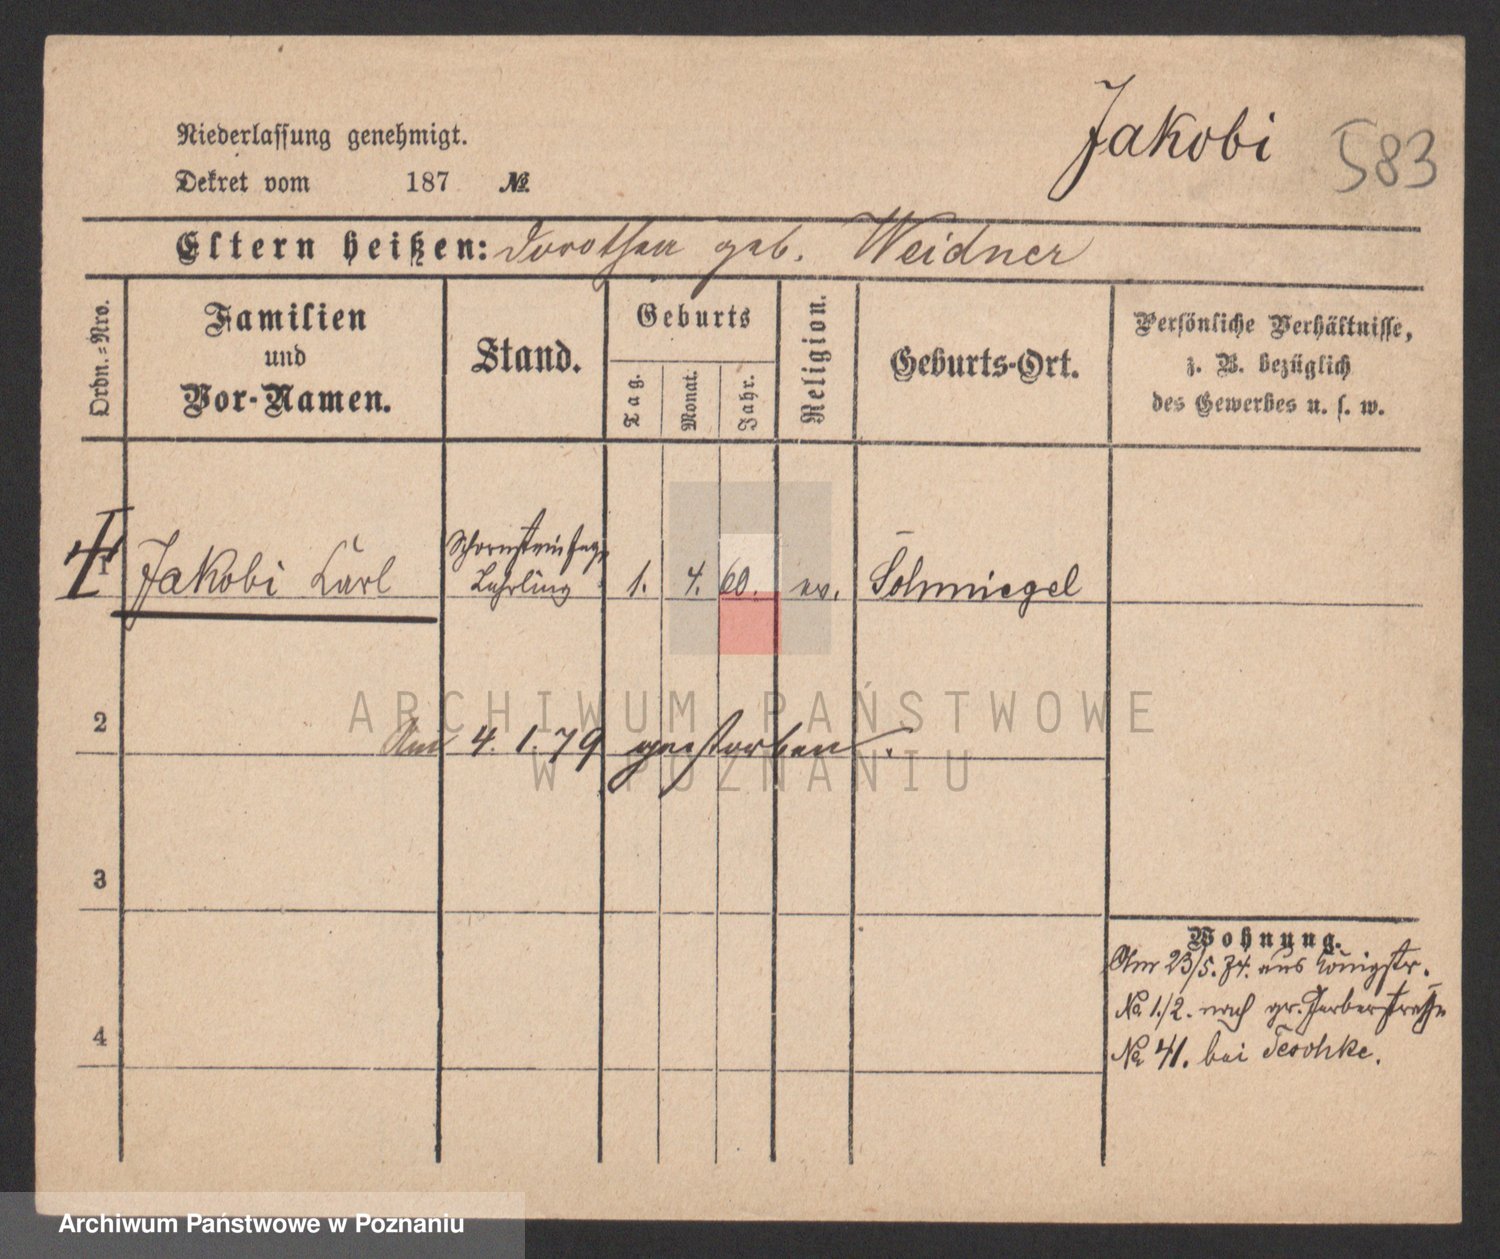 Jakobi 583
Niederlassung genehmigt.
Dekret vom 187 №
Eltern heißen: Dorothea geb. Weidner
Ordn.-Nro.
Familien
und
Vor-Namen.
Stand.
Geburts
Tag.
Monat.
Jahr.
Religion.
Geburts-Ort.
Persönliche Verhältnisse,
z. B. bezüglich
des Gewerbes u. s. w.
1 Jakobi Carl Schornsteinfeg. 1. 4. 60. ev. Schmiegel
Lehrling
2
Am 4. 1. 79 gestorben.
3
4
Wohnung.
Am 23/5. 74. aus Königstr.
No 1./2. nach gr. Gerberstraße
No 41. bei Teschke.
ARCHIWUM PAŃSTWOWE
W POZNANIU
Archiwum Państwowe w Poznaniu